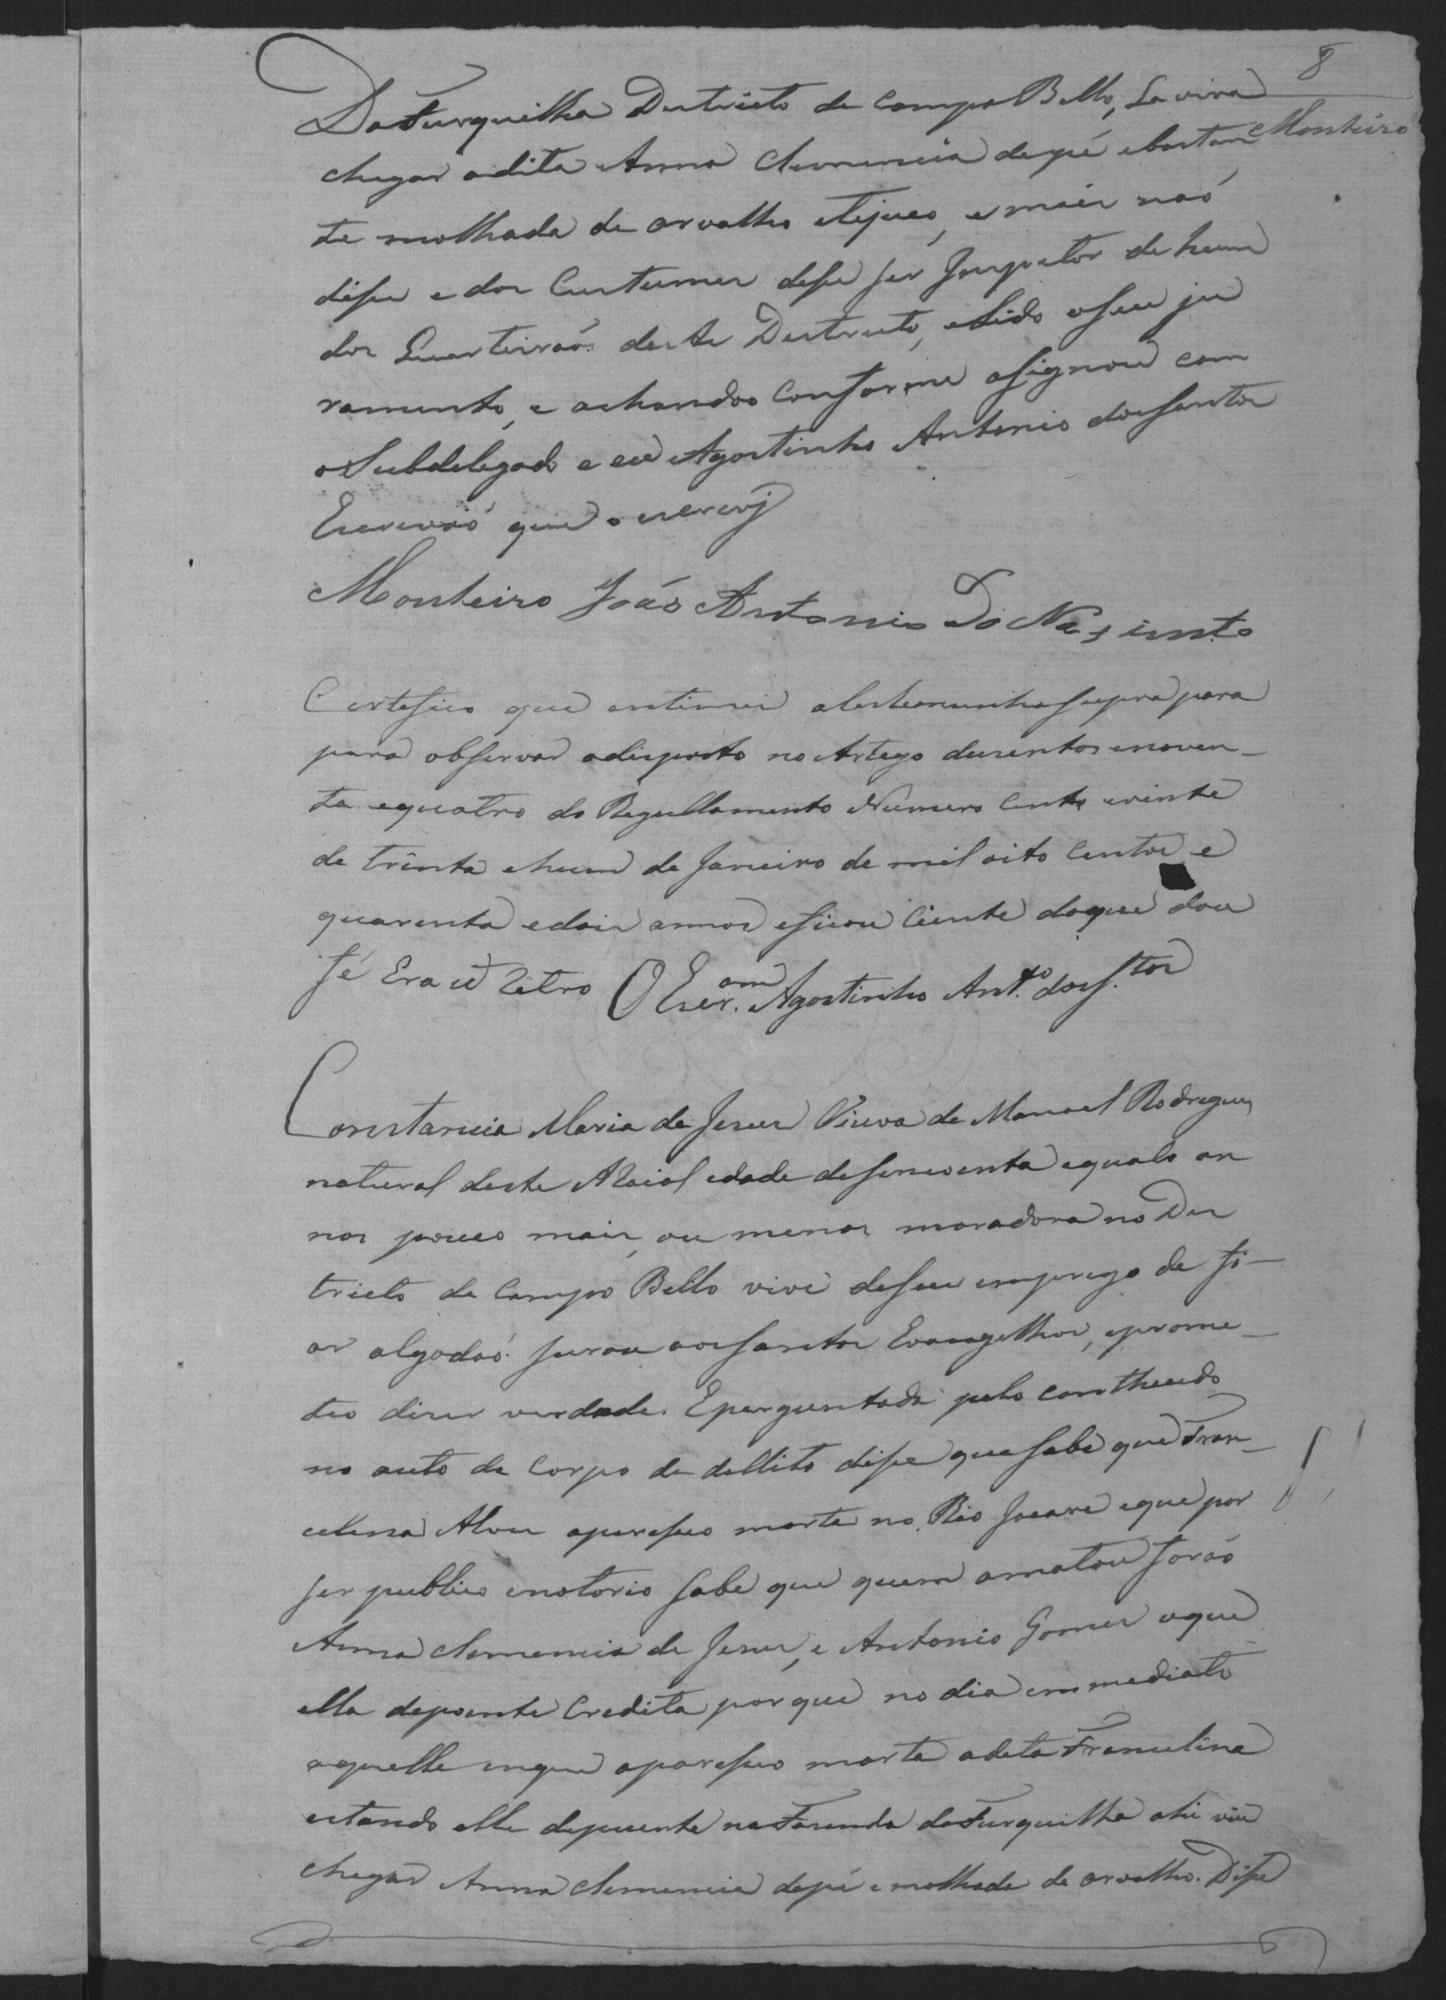 8
Monteiro
Da Furquilha Destricto de Campo Bello, la vira
chegar adita Anna Clemencia depé ebastan
te molhada de orvalho etejuco, e mais naó
dise e dos Custumes dise ser Inspetor de hum
dos Quarteiraós deste Destricto, elido oseu ju
ramento, e achandoo conforme asignou com
o Subdelegado e eu Agostinho Antonio dos santos
Escrivaó que o escrevj
Monteiro Joáo Antonio Do Nasimto
Certefico que entimei atestemunha supra para
para observar adisposto no Artego dusentos enoven-
ta equatro do Regullamento Numero Cento evinte
de trinta ehum de Janeiro de mil oito centos e
quarenta edois annos eficou Ciente doque dou
fé Era ut retro O Escr.am Agostinho Ant.to dos S.tos
Constancia Maria de Jesus Viuva de Manoel Rodrigues
natural deste Araial edade desincoenta equatro an
nos pouco mais, ou menos moradora no Des
tricto de Campo Bello vive deseu emprego de fi-
ar algodaó. Jurou aos santos Evangelhos, eprome-
teo diser verdade. Eperguntada pelo contheudo
no auto de Corpo de dellito dise que sabe que Fran-
celina Alves aparesseo morta no Rio Jacare eque por
ser publico enotorio sabe que quem amatou foraó
Anna Clemencia de Jesus, e Antonio Gomes oque
ella depoente Credita porque no dia emmediato
aquelle enque aparesseo morta adeta Francelina
estando elle depuente na Fasenda da Furquilha ahi viu
chegar Anna Clemencia depé e molhada de orvalho. Dise